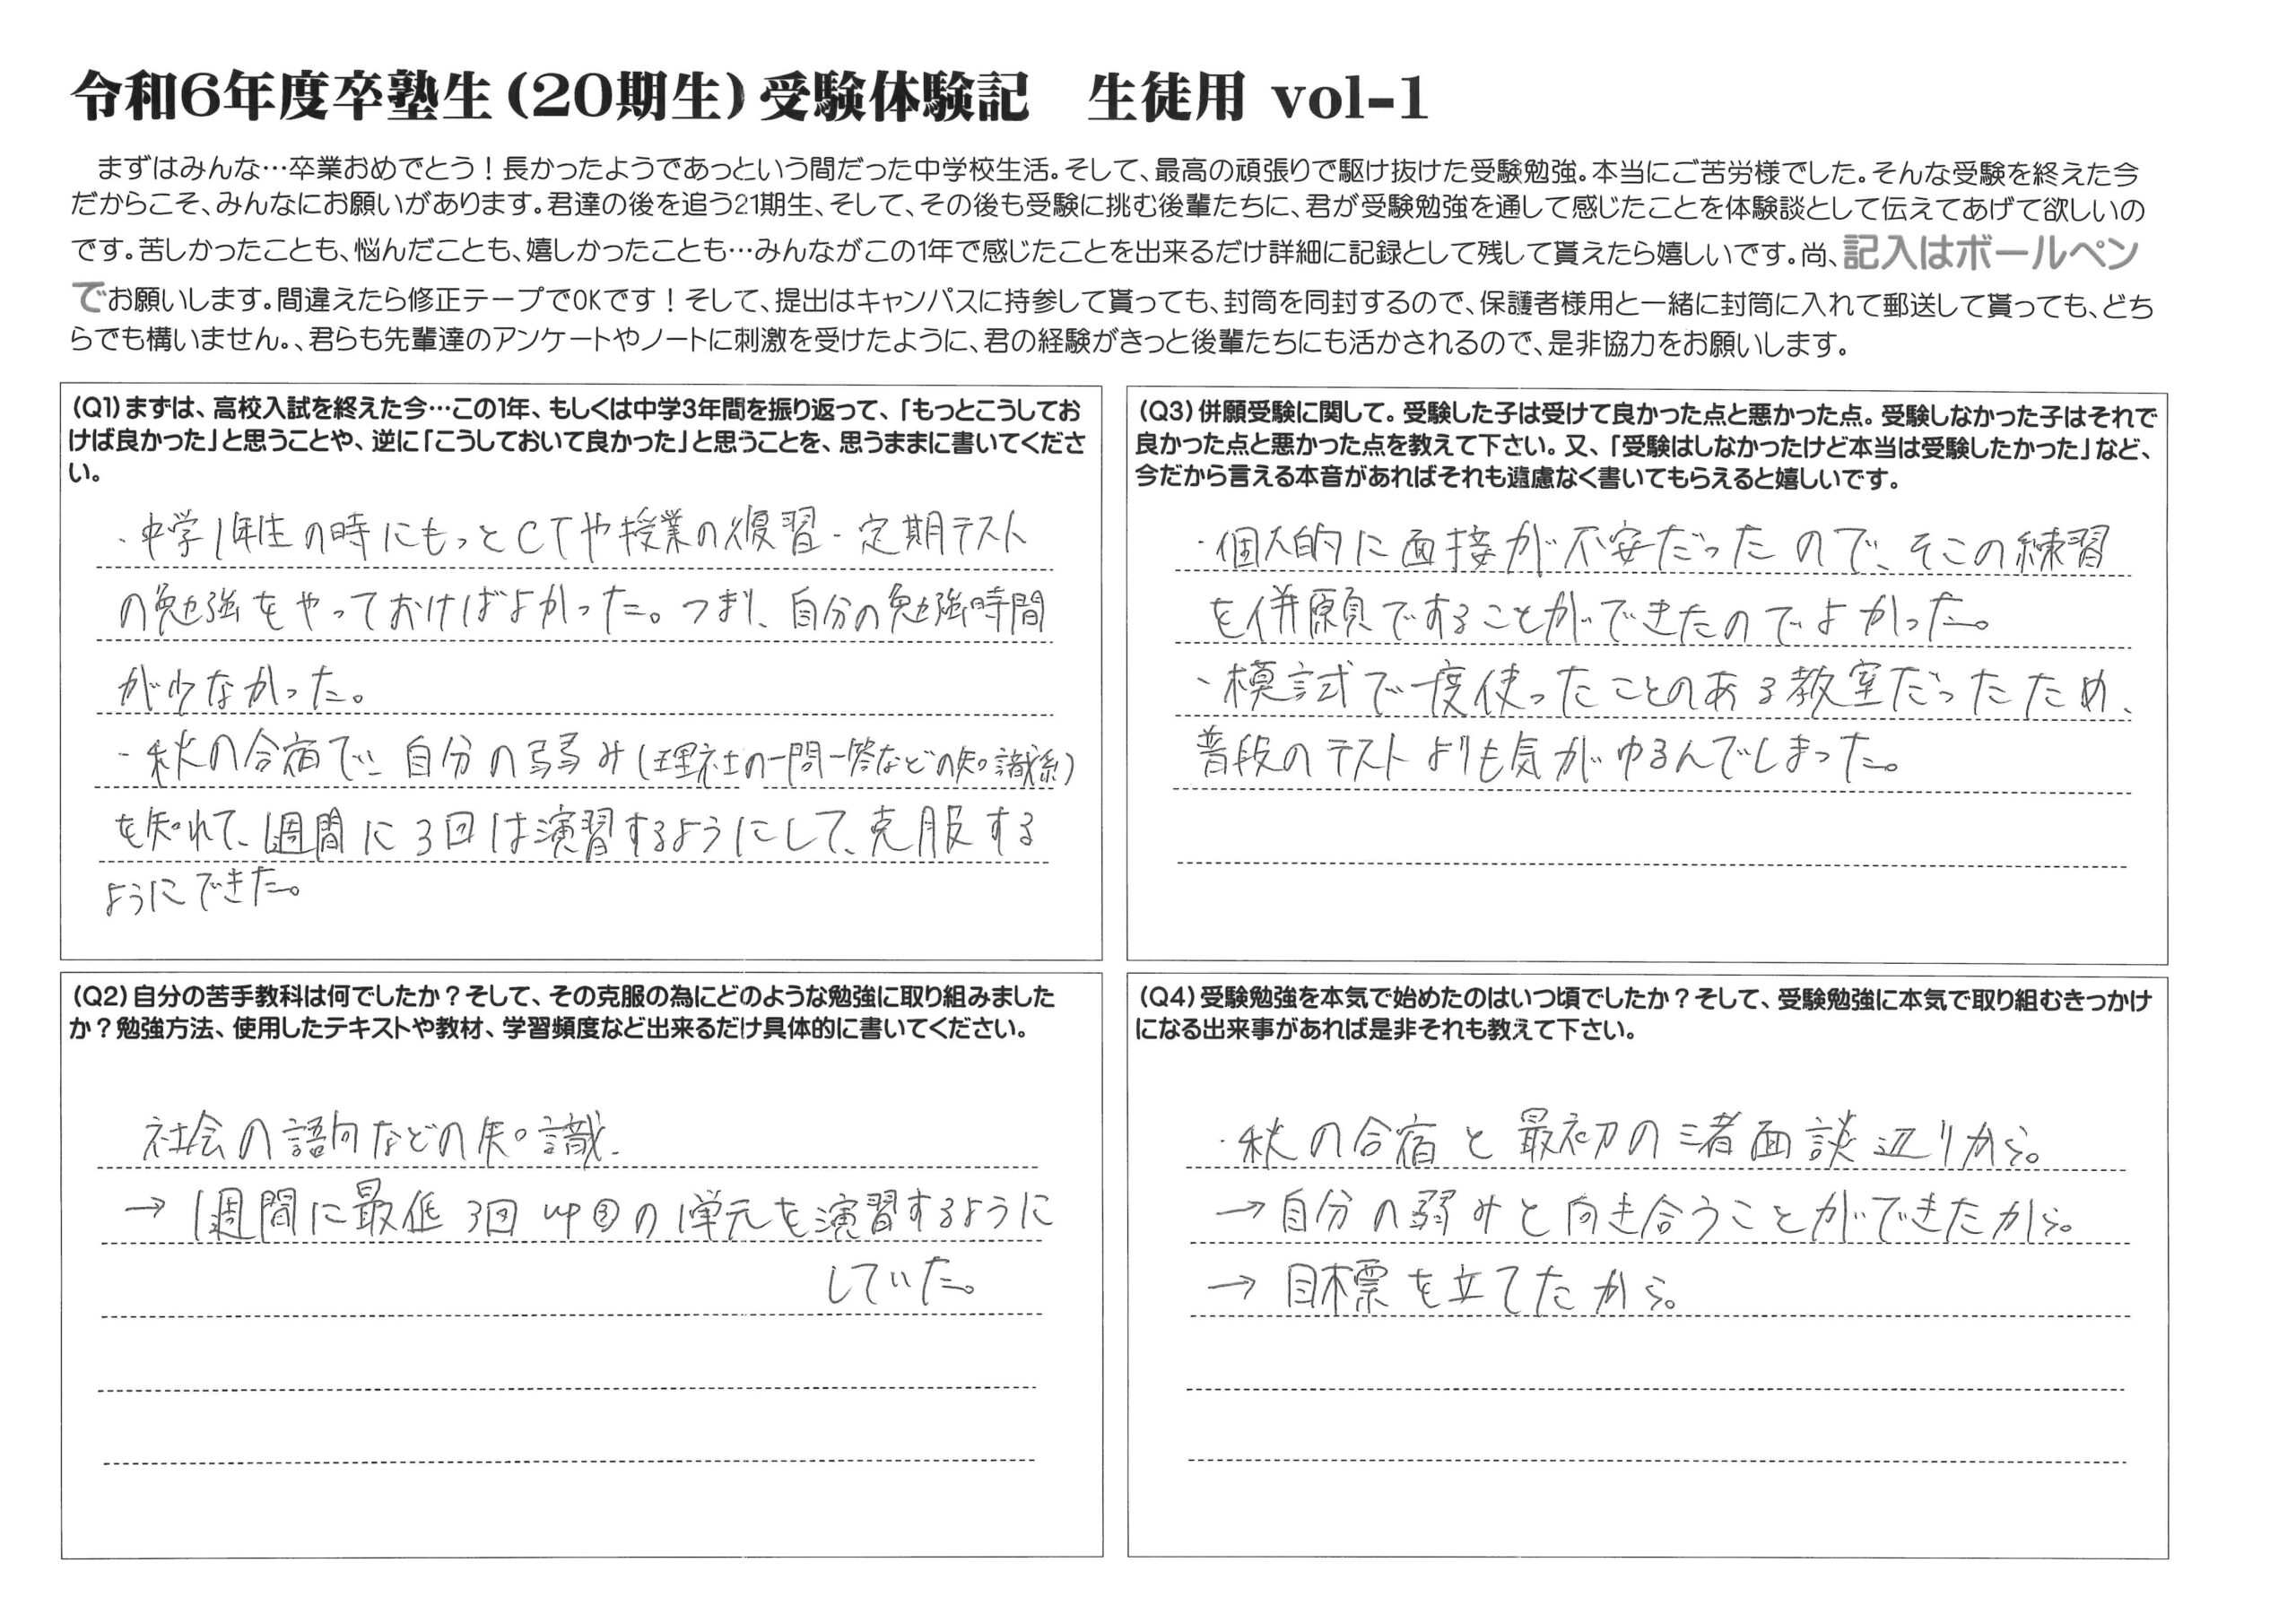 令和6年度卒塾生（20期生）受験体験記　生徒用 vol-1
まずはみんな…卒業おめでとう！長かったようであっという間だった中学校生活。そして、最高の頑張りで駆け抜けた受験勉強。本当にご苦労様でした。そんな受験を終えた今
だからこそ、みんなにお願いがあります。君達の後を追う21期生、そして、その後も受験に挑む後輩たちに、君が受験勉強を通して感じたことを体験談として伝えてあげて欲しいの
です。苦しかったことも、悩んだことも、嬉しかったことも…みんながこの1年で感じたことを出来るだけ詳細に記録として残して貰えたら嬉しいです。尚、記入はボールペン
でお願いします。間違えたら修正テープでOKです！そして、提出はキャンパスに持参して貰っても、封筒を同封するので、保護者様用と一緒に封筒に入れて郵送して貰っても、どち
らでも構いません。、君らも先輩達のアンケートやノートに刺激を受けたように、君の経験がきっと後輩たちにも活かされるので、是非協力をお願いします。
（Q1）まずは、高校入試を終えた今…この1年、もしくは中学3年間を振り返って、「もっとこうしてお
けば良かった」と思うことや、逆に「こうしておいて良かった」と思うことを、思うままに書いてくださ
い。
・中学1年生の時にもっとCTや授業の復習・定期テスト
の勉強をやっておけばよかった。つまり、自分の勉強時間
が少なかった。
・秋の合宿で、自分の弱み（理社の一問一答などの知識系）
を知れて、1週間に3回は演習するようにして、克服する
ようにできた。
（Q2）自分の苦手教科は何でしたか？そして、その克服の為にどのような勉強に取り組みました
か？勉強方法、使用したテキストや教材、学習頻度など出来るだけ具体的に書いてください。
社会の語句などの知識.
→ 1週間に最低3回 up③の1単元を演習するように
していた。
（Q3）併願受験に関して。受験した子は受けて良かった点と悪かった点。受験しなかった子はそれで
良かった点と悪かった点を教えて下さい。又、「受験はしなかったけど本当は受験したかった」など、
今だから言える本音があればそれも遠慮なく書いてもらえると嬉しいです。
・個人的に面接が不安だったので、そこの練習
を併願ですることができたのでよかった。
・模試で一度使ったことのある教室だったため、
普段のテストよりも気がゆるんでしまった。
（Q4）受験勉強を本気で始めたのはいつ頃でしたか？そして、受験勉強に本気で取り組むきっかけ
になる出来事があれば是非それも教えて下さい。
・秋の合宿と最初の三者面談辺りから。
→自分の弱みと向き合うことができたから。
→ 目標を立てたから。